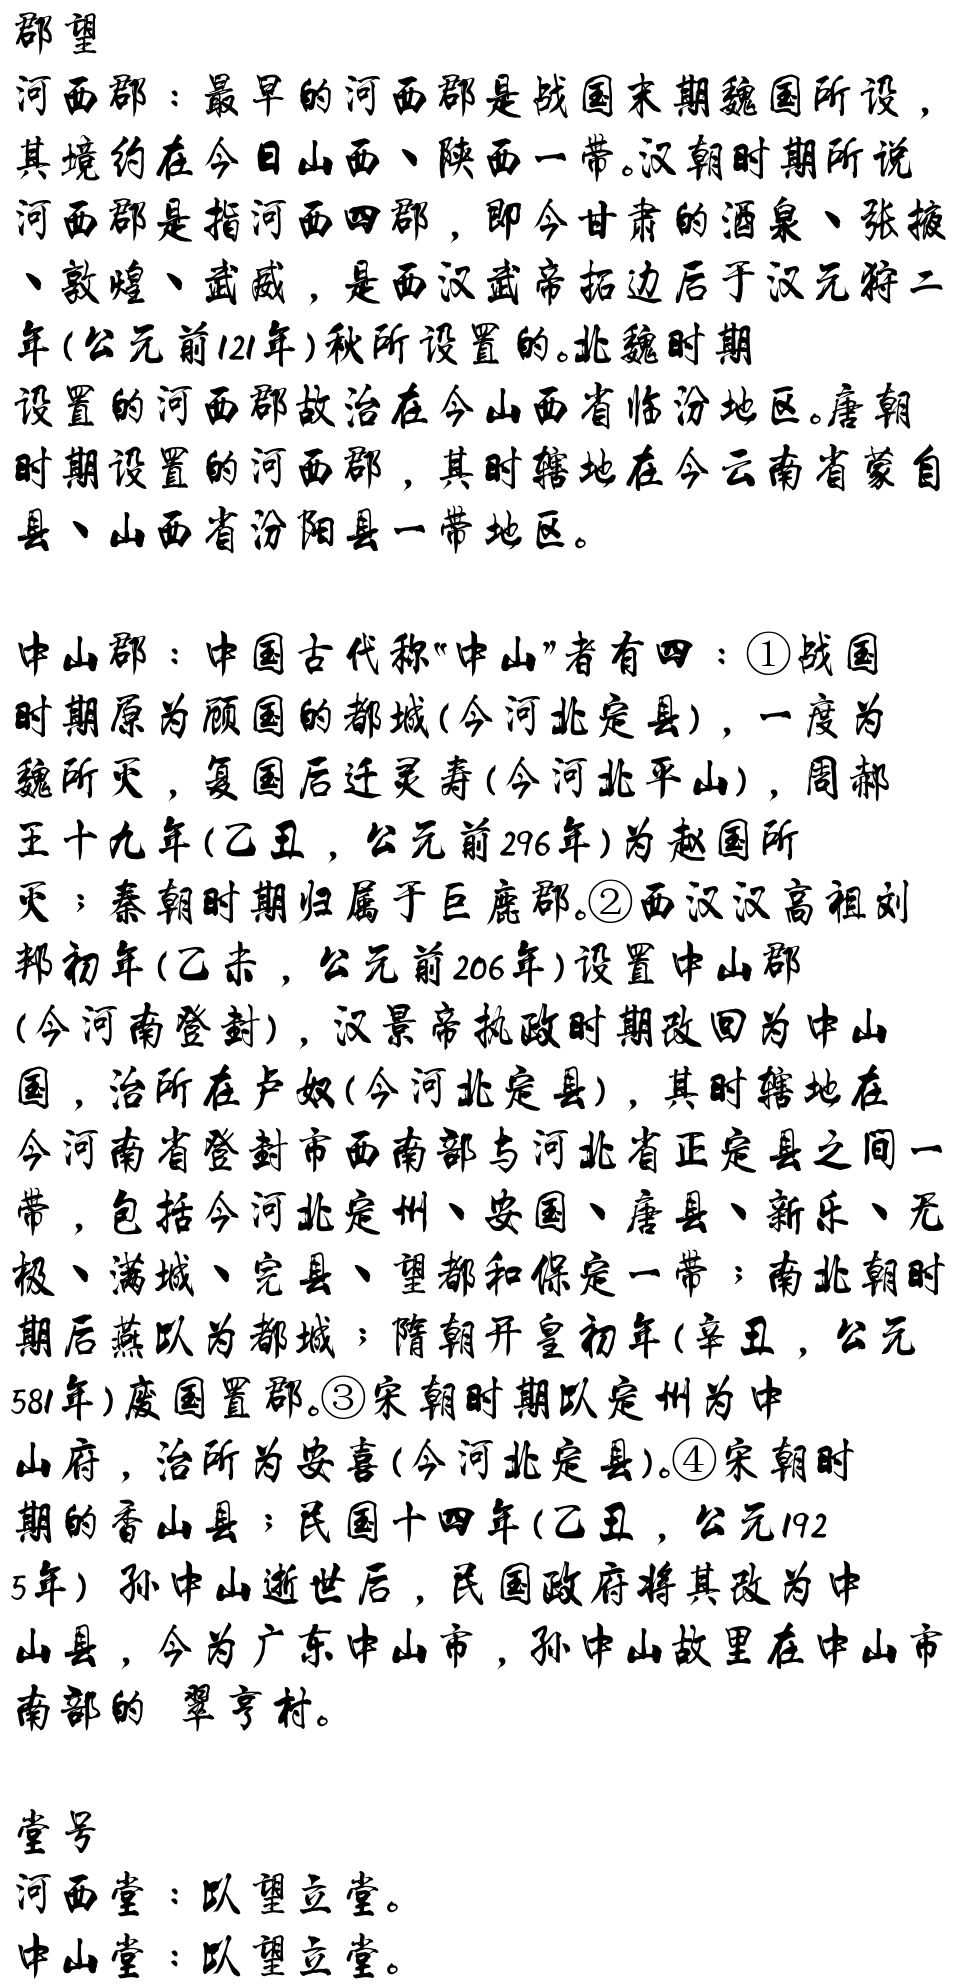 郡望
河西郡：最早的河西郡是战国末期魏国所设，
其境约在今日山西、陕西一带。汉朝时期所说
河西郡是指河西四郡，即今甘肃的酒泉、张掖
、敦煌、武威，是西汉武帝拓边后于汉元狩二
年(公元前121年)秋所设置的。北魏时期
设置的河西郡故治在今山西省临汾地区。唐朝
时期设置的河西郡，其时辖地在今云南省蒙自
县、山西省汾阳县一带地区。
中山郡：中国古代称“中山”者有四：①战国
时期原为顾国的都城(今河北定县)，一度为
魏所灭，复国后迁灵寿(今河北平山)，周郝
王十九年(乙丑，公元前296年)为赵国所
灭；秦朝时期归属于巨鹿郡。②西汉汉高祖刘
邦初年(乙未，公元前206年)设置中山郡
(今河南登封)，汉景帝执政时期改回为中山
国，治所在卢奴(今河北定县)，其时辖地在
今河南省登封市西南部与河北省正定县之间一
带，包括今河北定州、安国、唐县、新乐、无
极、满城、完县、望都和保定一带；南北朝时
期后燕以为都城；隋朝开皇初年(辛丑，公元
581年)废国置郡。③宋朝时期以定州为中
山府，治所为安喜(今河北定县)。④宋朝时
期的香山县；民国十四年(乙丑，公元192
5年) 孙中山逝世后，民国政府将其改为中
山县，今为广东中山市，孙中山故里在中山市
南部的 翠亨村。
堂号
河西堂：以望立堂。
中山堂：以望立堂。